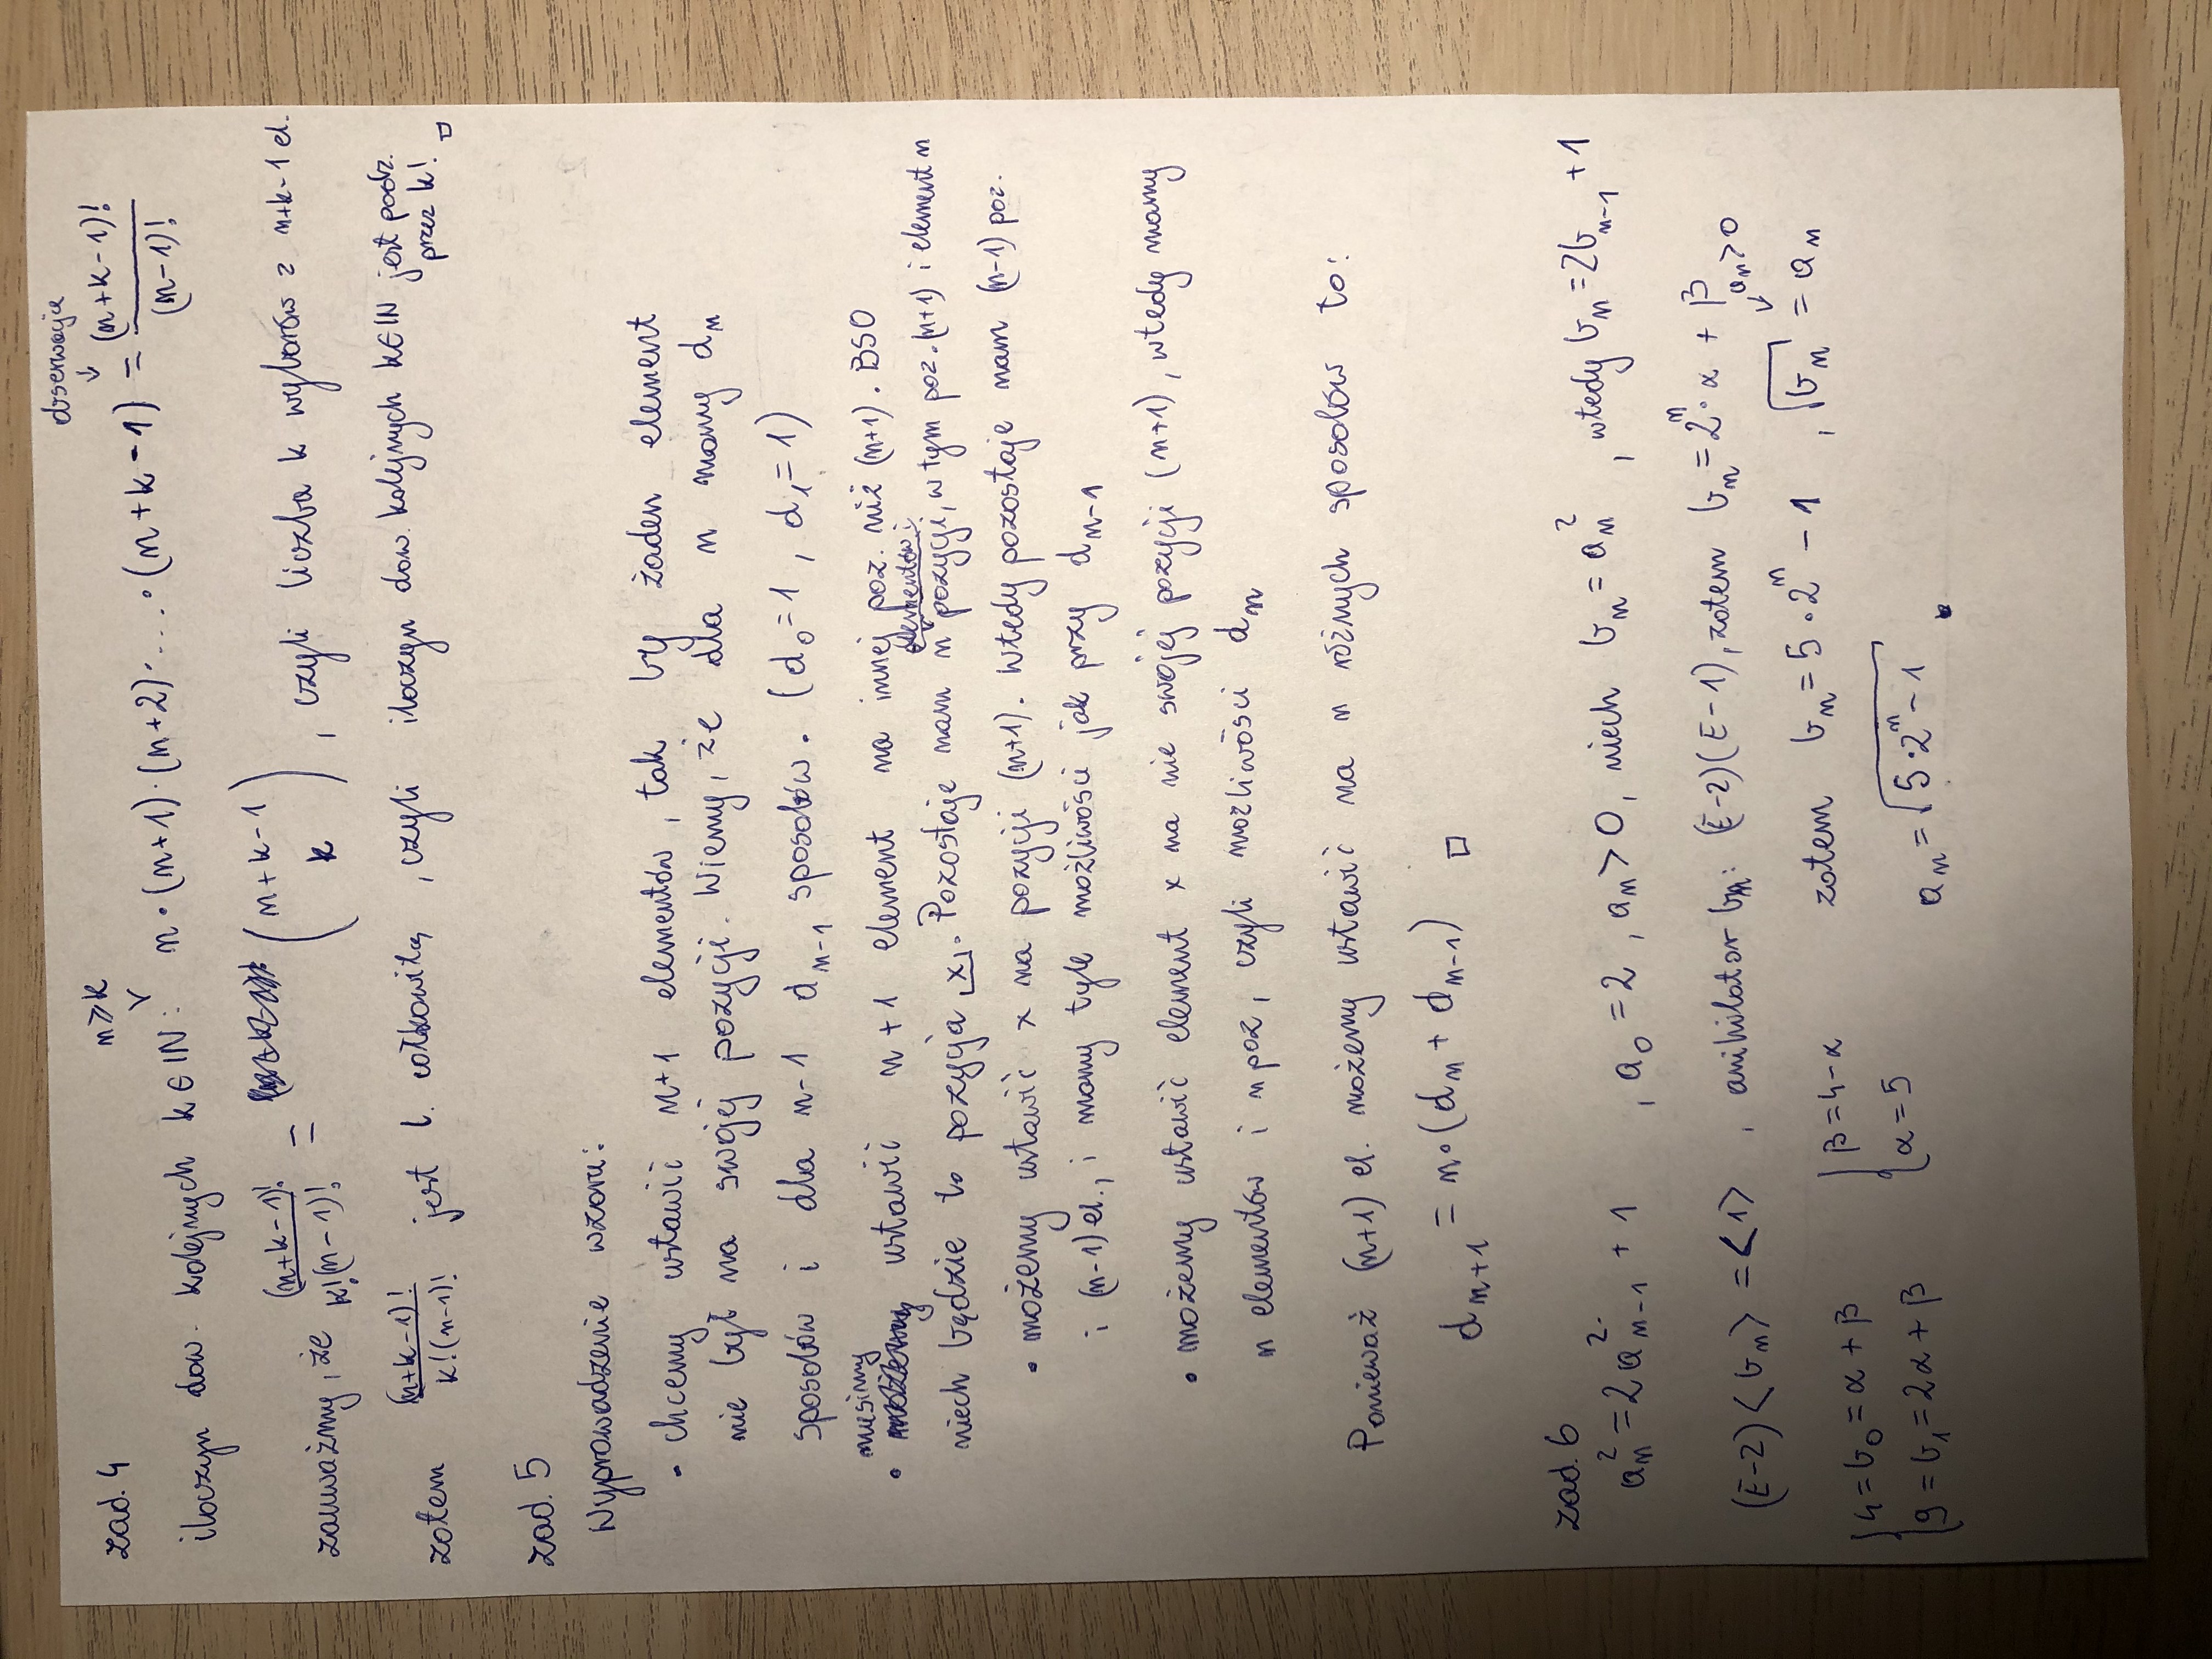 obserwacja
n⩾k
zad. 4
iloczyn dow. kolejnych k∈ℕ: n·(n+1)·(n+2)·...·(n+k-1) = (n+k-1)!/(n-1)!
zauważmy, że (n+k-1)!/k!(n-1)! = (n+k-1 k), czyli liczba k wyborów z n+k-1 el.
zatem (n+k-1)!/k!(n-1)! jest l. całkowitą, czyli iloczyn dow. kolejnych k∈ℕ jest podz.
przez k! □
zad. 5
Wyprowadzenie wzoru:
- chcemy ustawić n+1 elementów, tak by żaden element
nie był na swojej pozycji. Wiemy, że dla n mamy dₙ
sposobów i dla n-1 dₙ₋₁ sposobów. (d₀=1, d₁=1)
musimy
• ustawić n+1 element na innej poz. niż (n+1). BSO
elementów i
niech będzie to pozycja x. Pozostaje nam n pozycji, w tym poz. (n+1) i element n
• możemy ustawić x na pozycji (n+1). Wtedy pozostaje nam (n-1) poz.
i (n-1) el., i mamy tyle możliwości jak przy dₙ₋₁
• możemy ustawić element x na nie swojej pozycji (n+1), wtedy mamy
n elementów i n poz, czyli możliwości dₙ
Ponieważ (n+1) el. możemy ustawić na n różnych sposobów to:
dₙ₊₁ = n·(dₙ + dₙ₋₁) □
zad. 6
aₙ² = 2aₙ₋₁² + 1 , a₀ = 2 , aₙ > 0, niech bₙ = aₙ² , wtedy bₙ = 2bₙ₋₁ + 1
(E-2)⟨bₙ⟩ = ⟨1⟩ , anihilator bₙ: (E-2)(E-1), zatem bₙ = 2ⁿ·α + β
aₙ>0
zatem bₙ = 5·2ⁿ - 1 , √bₙ = aₙ
{4 = b₀ = α + β {β = 4-α
9 = b₁ = 2α + β α = 5
aₙ = √(5·2ⁿ - 1)